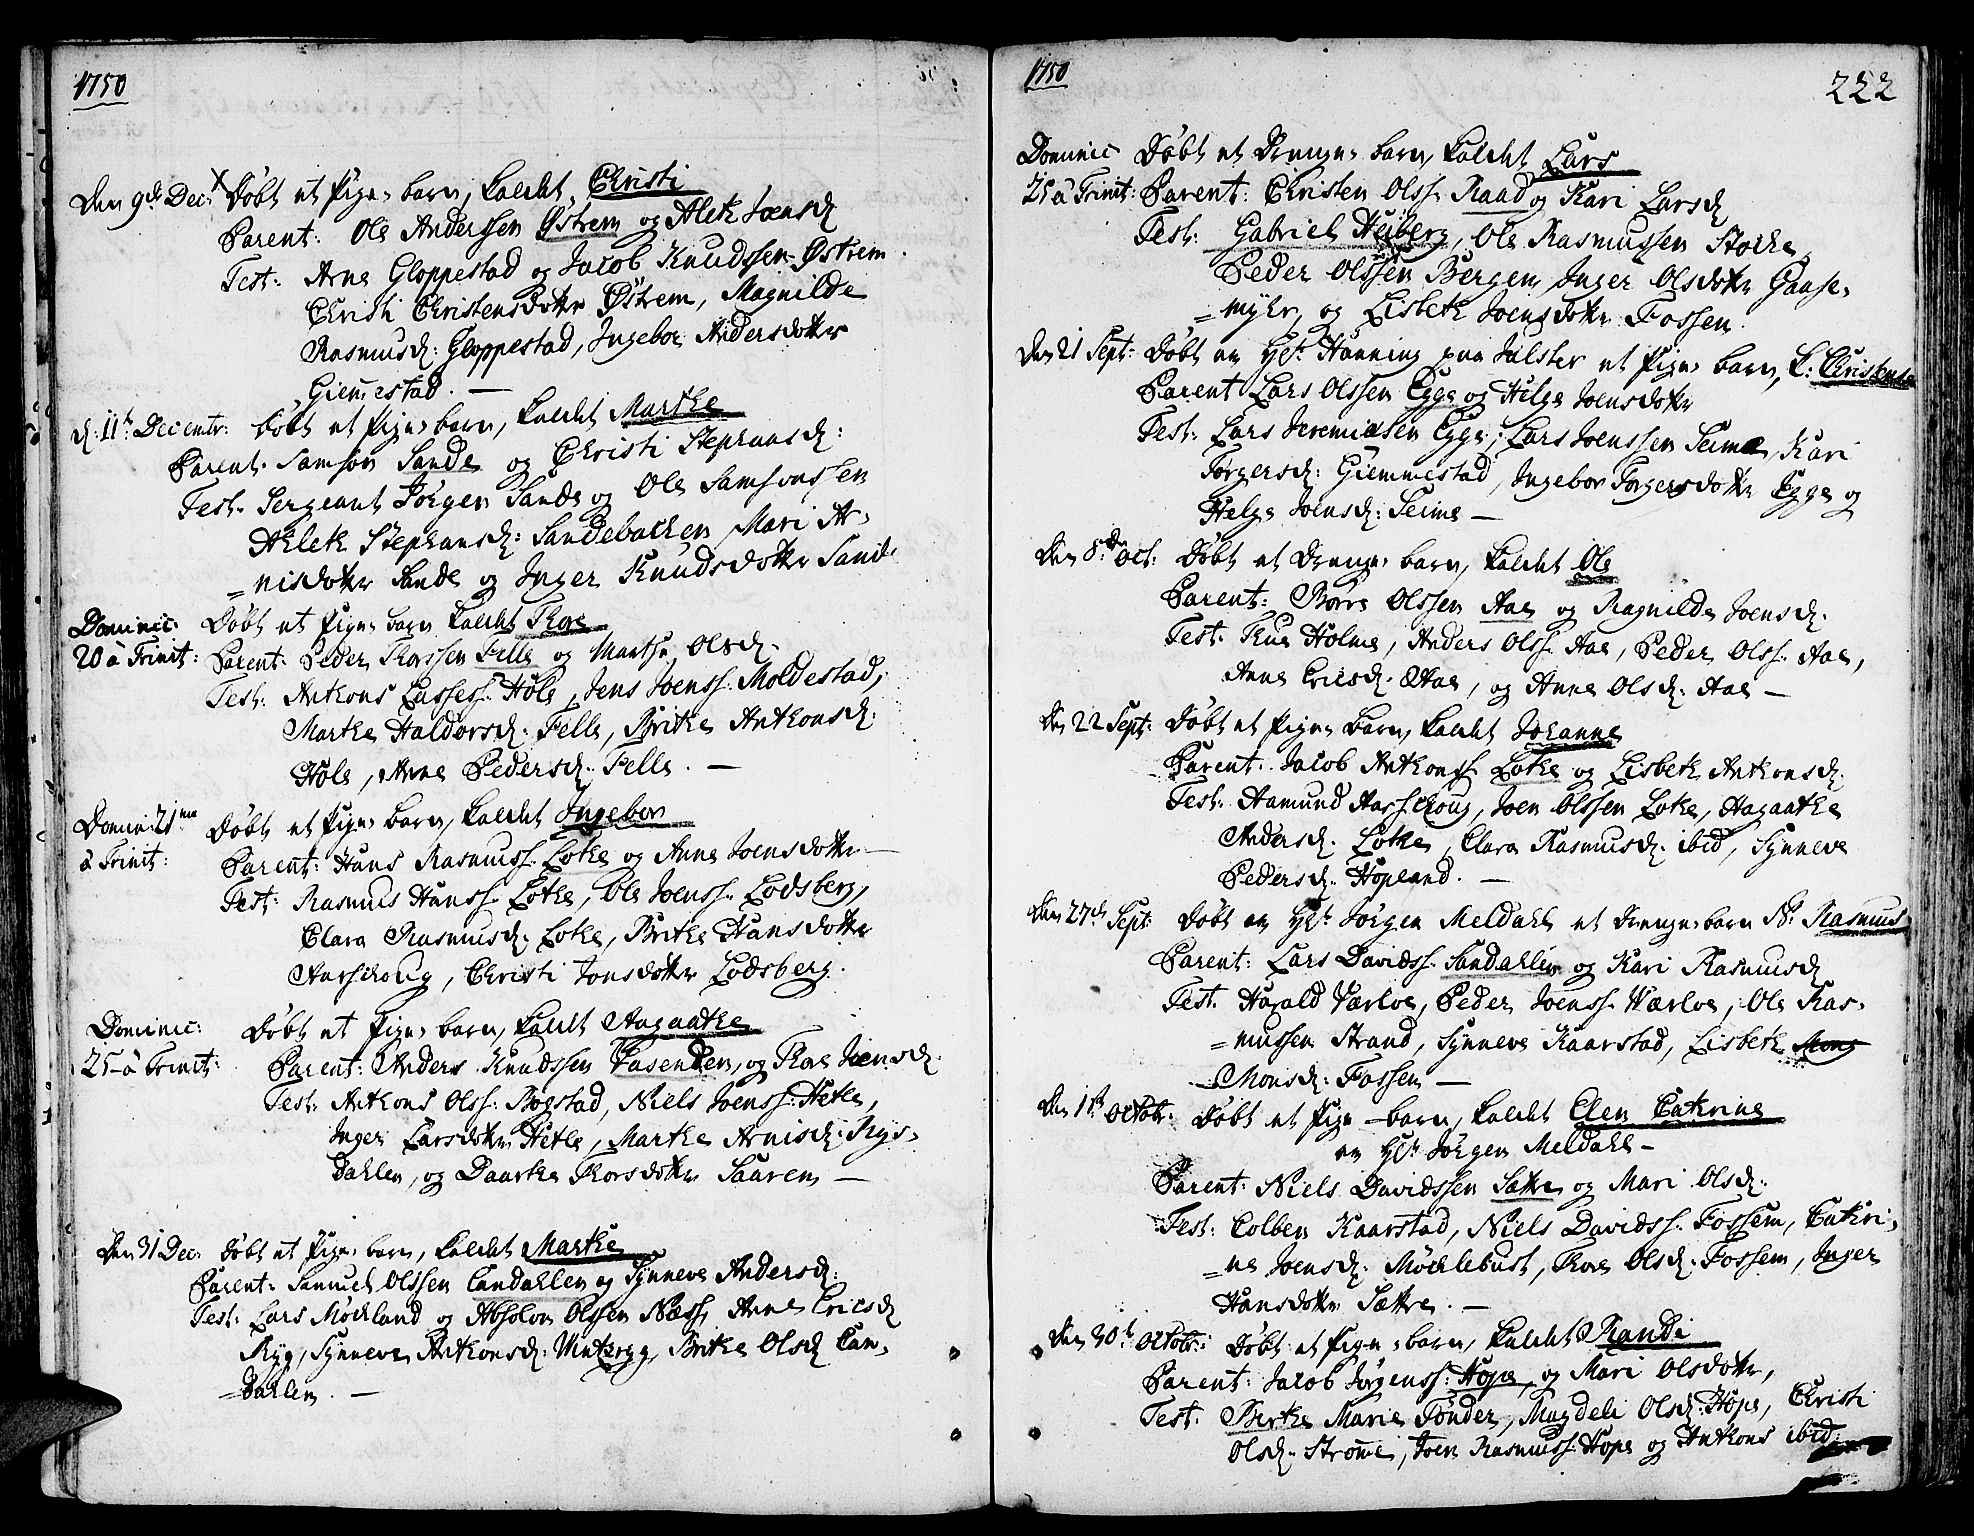 1750
Den 9de Dec: Døbt et Pige-barn, kaldet, Christi
Parent: Ole Anderssen Østrem og Alet Joensd
Test: Arne Gloppestad og Jacob Knudssen Østrem.
Christi Christensdotter Østrem, Magnilde
Rasmusd: Gloppestad, Ingebor Andersdotter
Giem̄estad. —
d: 11te Decembr: Døbt et Pige-barn, kaldet Marthe
Parent. Samson Sande og Christi Stephansd:
Test. Sergeant Jørgen Sande og Ole Samsonssen
Ahlet Stephansd: Sandebakken, Mari Ar-
=nisdotter Sande og Inger Knudsdotter Sande
Dominic: Døbt et Pige-barn kaldet Thore
20 à Trinit: Parent. Peder Thorssen Felle og Marthe Olsd.
Test: Anthons Lassess. Hole, Jens Joenss. Moldestad,
Marthe Haldorsd. Felle, Brithe Anthonsd.
Hole, Anne Pedersd. Felle. —
Domin: 21me Døbt et Pige-barn, kaldet Ingebor
à Trinit: Parent: Hans Rasmuss. Lothe og Anne Joensdotter —
Test: Rasmus Hanss. Lothe, Ole Joenss. Lodsberg,
Clara Rasmusd. Lothe, Brithe Hansdotter
Aarschoug, Christi Jonsdotter Lodsberg.
Dominic: Døbt et Pige-barn, kaldet Aagaathe
25 à Trinit: Parent: Anders Knudssen Vasenden, og Thore Joensd.
Test: Anthons Olss. Bogstad, Niels Joenss: Hetle,
Inger Larsdotter Hetle, Marthe Arnisd: Nys-
dahlen, og Daarthe Thorsdotter Saaren —
Den 31 Dec: Døbt et Pige-barn, kaldet Marthe
Parent: Samuel Olssen Eandahlen og Synneve Andersd:
Test: Lars Møchland og Absolon Olssen Næss, Anne Ericsd
Ryg, Synneve Anthonsd: Utteryg, Brithe Olsd Ean-
=dahlen. —
1750
222
Dominic Døbt et Drenge-barn, kaldet Lars
25 à Trinit: Parent: Christen Olss. Raad og Kari Larsd
Test: Gabriel Heiberg, Ole Rasmussen Stocke,
Peder Olssen Bergen, Inger Olsdotter Gaase-
=myhr, og Lisbeth Joensdotter Fossen.
Den 21 Sept: Døbt en Hr. Hanning paa Jølster et Pige-barn, k: Christense
Parent Lars Olssen Egge og Helge Joensdotter
Test: Lars Jeremiæsen Egge, Lars Joenssen Seime, Kari
Torgersd: Giemmestad, Ingebor Torgersdotter Egge og
Helge Joensd: Seime —
Den 8de Oct: Døbt et Drenge-barn, kaldet Ole
Parent: Børre Olssen Aae og Ragnilde Joensd.
Test. Thue Holme, Anders Olss. Aae, Peder Olss. Aae,
Anne Ericsd. Aae, og Anne Olsd. Aae —
Den 22 Sept: Døbt et Pige-barn, kaldet Johanne
Parent. Jacob Anthonss. Lothe og Lisbeth Anthonsd.
Test. Aamund Aarschoug, Joen Olssen Lothe, Aagaathe
Andersd. Lothe, Clara Rasmusd. ibid, Synneve
Pedersd. Hopland. —
Den 27de Sept: Døbt en Hr. Jørgen Meldahl et Drenge-barn N. Rasmus
Parent: Lars Davidss. Sandahlen og Kari Rasmusd
Test. Harald Værloe, Peder Joenss. Værloe, Ole Ras-
=mussen Strand, Synneve Kaarstad, Lisbeth Mons
Monsd: Fossen —
Den 1te Octobr. Døbt et Pige-barn, kaldet Elen Cathrine
en Hr. Jørgen Meldahl —
Parent: Niels Davidssen Sættre og Mari Olsd.
Test: Colben Kaarstad, Niels Davidss. Fossem, Cathri-
=ne Joensd. Møchlebust, Thore Olsd. Fossem, Inger
Hansdotter Sættre. —
Den 30te Octobr: Døbt et Pige-barn, kaldet Randi
Parent: Jacob Jørgenss: Hope, og Mari Olsdotter,
Test: Birthe Marie Tønder, Magdeli Olsd: Hope, Christi
Olsd. Strøme, Joen Rasmuss. Hope og Anthons ibid.